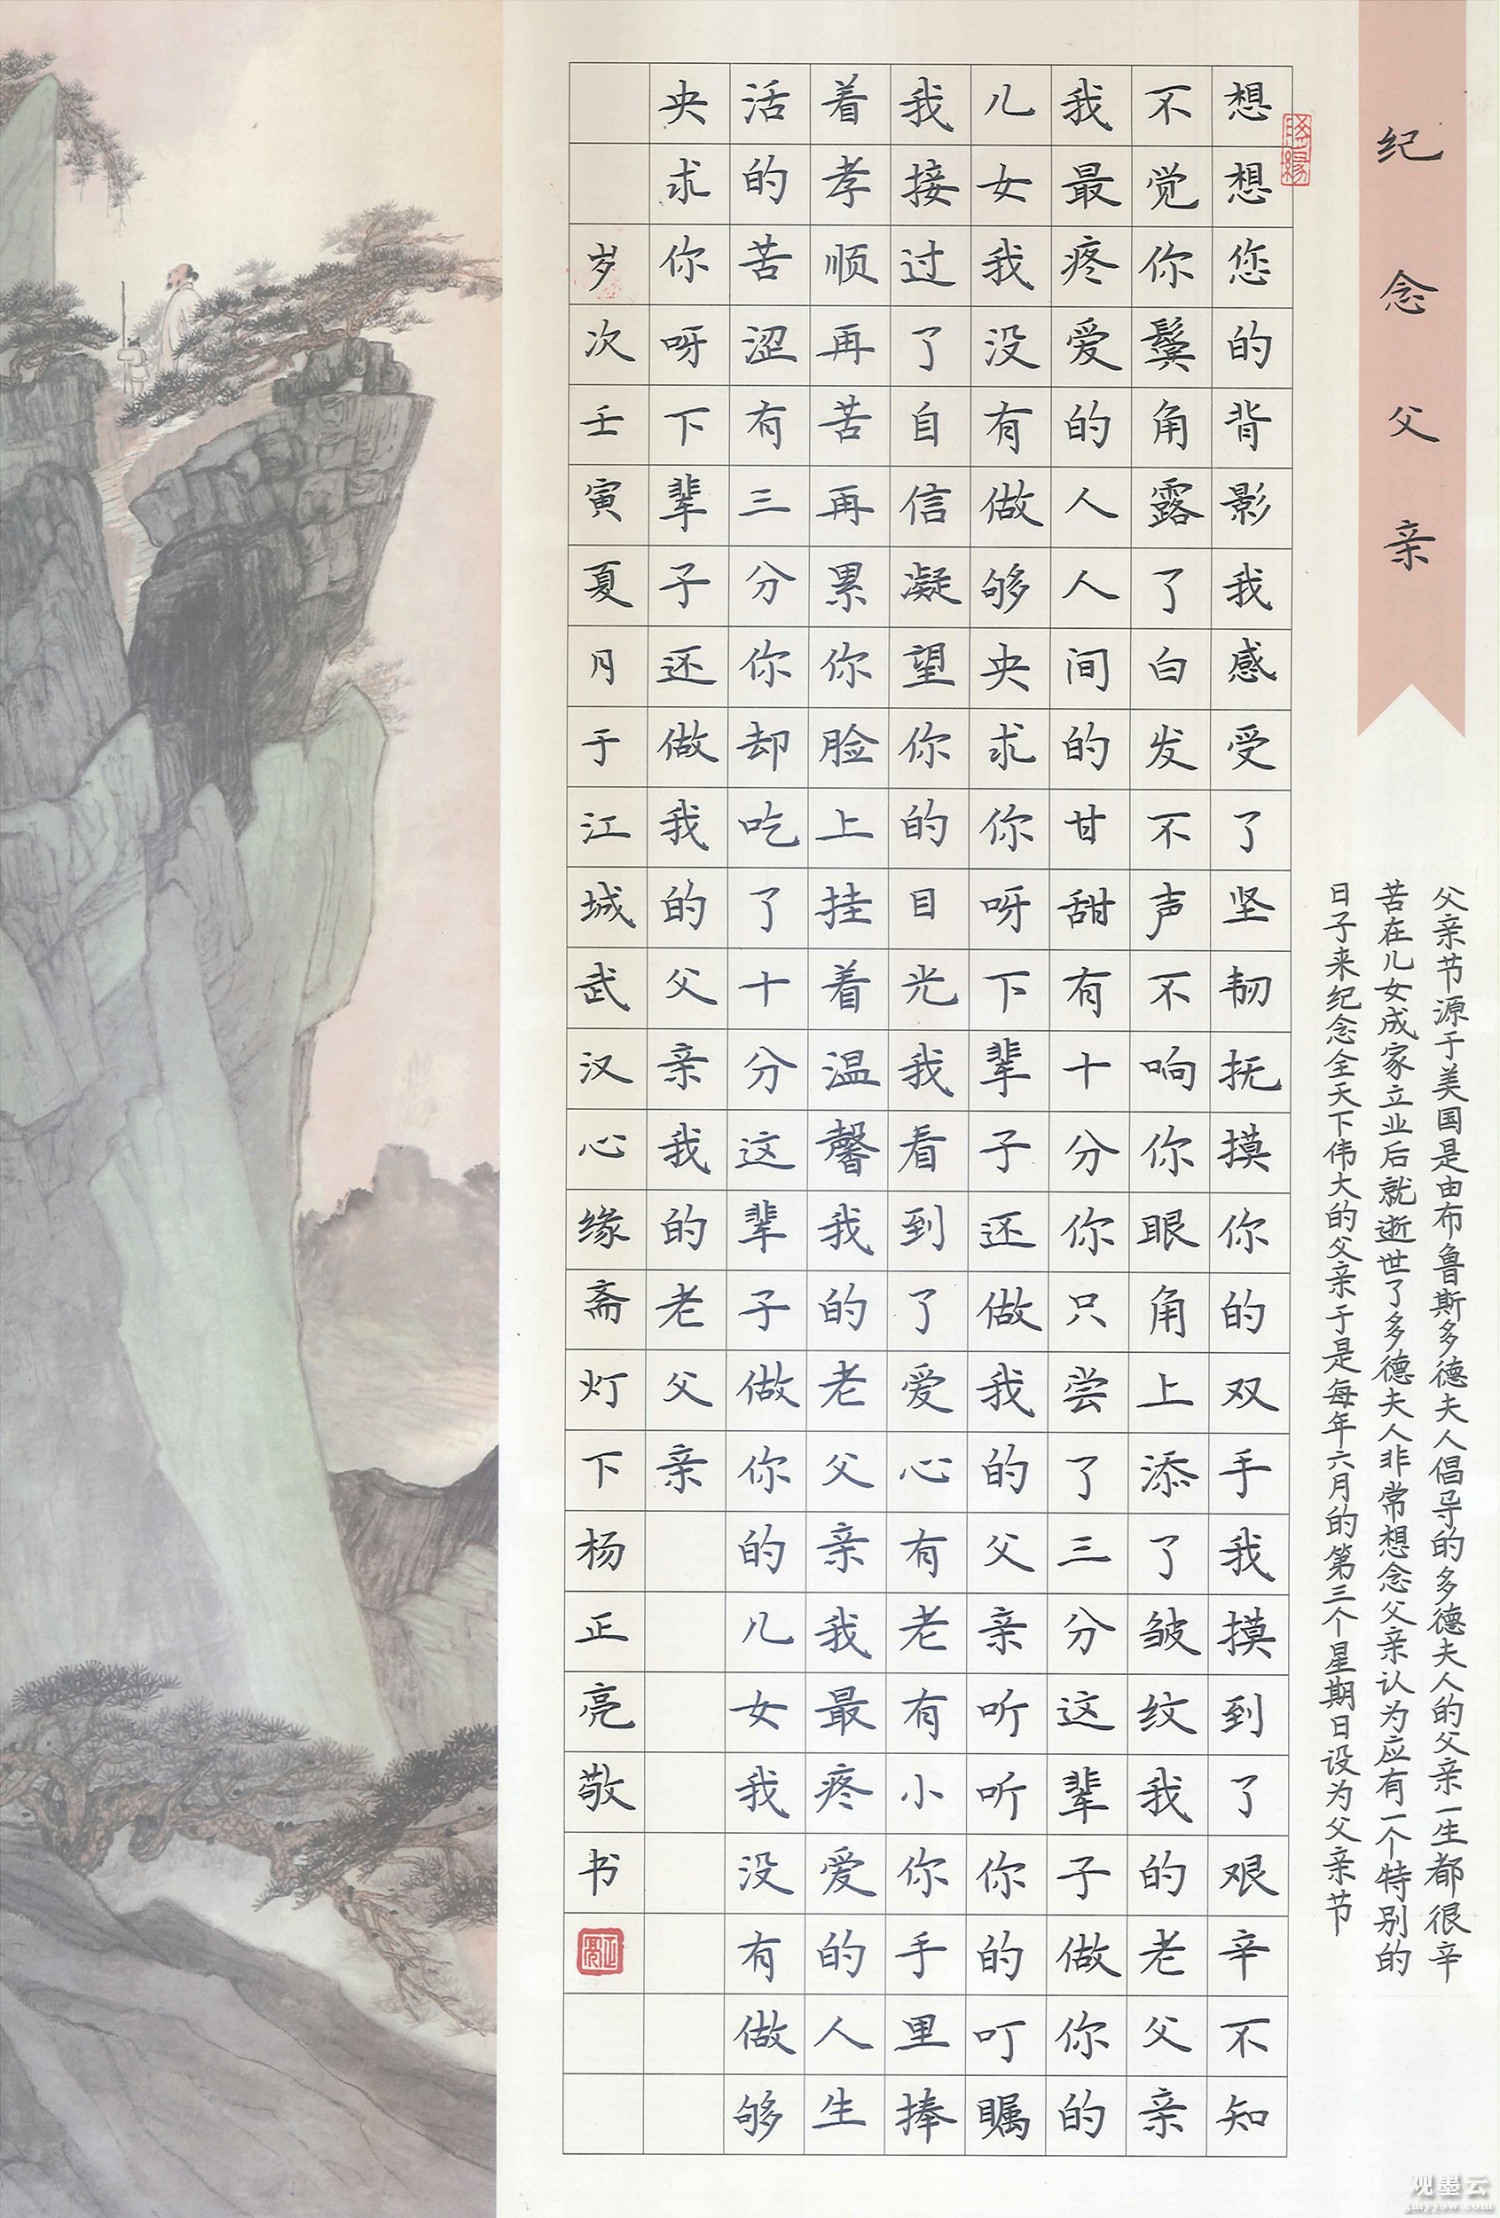 纪念父亲
父亲节源于美国是由布鲁斯多德夫人倡导的多德夫人的父亲一生都很辛
苦在儿女成家立业后就逝世了多德夫人非常想念父亲认为应有一个特别的
日子来纪念全天下伟大的父亲于是每年六月的第三个星期日设为父亲节
想想您的背影我感受了坚韧抚摸你的双手我摸到了艰辛不知
不觉你鬓角露了白发不声不响你眼角上添了皱纹我的老父亲
我最疼爱的人人间的甘甜有十分你只尝了三分这辈子做你的
儿女我没有做够央求你呀下辈子还做我的父亲听听你的叮嘱
我接过了自信凝望你的目光我看到了爱心有老有小你手里捧
着孝顺再苦再累你脸上挂着温馨我的老父亲我最疼爱的人生
活的苦涩有三分你却吃了十分这辈子做你的儿女我没有做够
央求你呀下辈子还做我的父亲我的老父亲
岁次壬寅夏月于江城武汉心缘斋灯下杨正亮敬书
观墨云
gmyysw.com